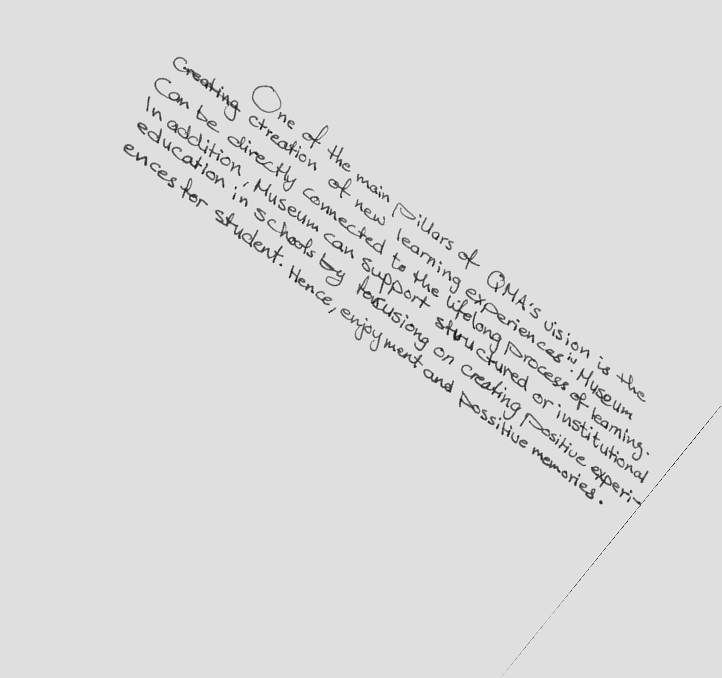 One of the main pillars of QMA's vision is the
creating ctreation of new learning experiences". Museum
Can be directly connected to the lifelong process of learning.
In addition, Museum can support structured or institutional
education in schools by focusiong on creating positive experi-
ences for student. Hence, enjoyment and possitive memories.